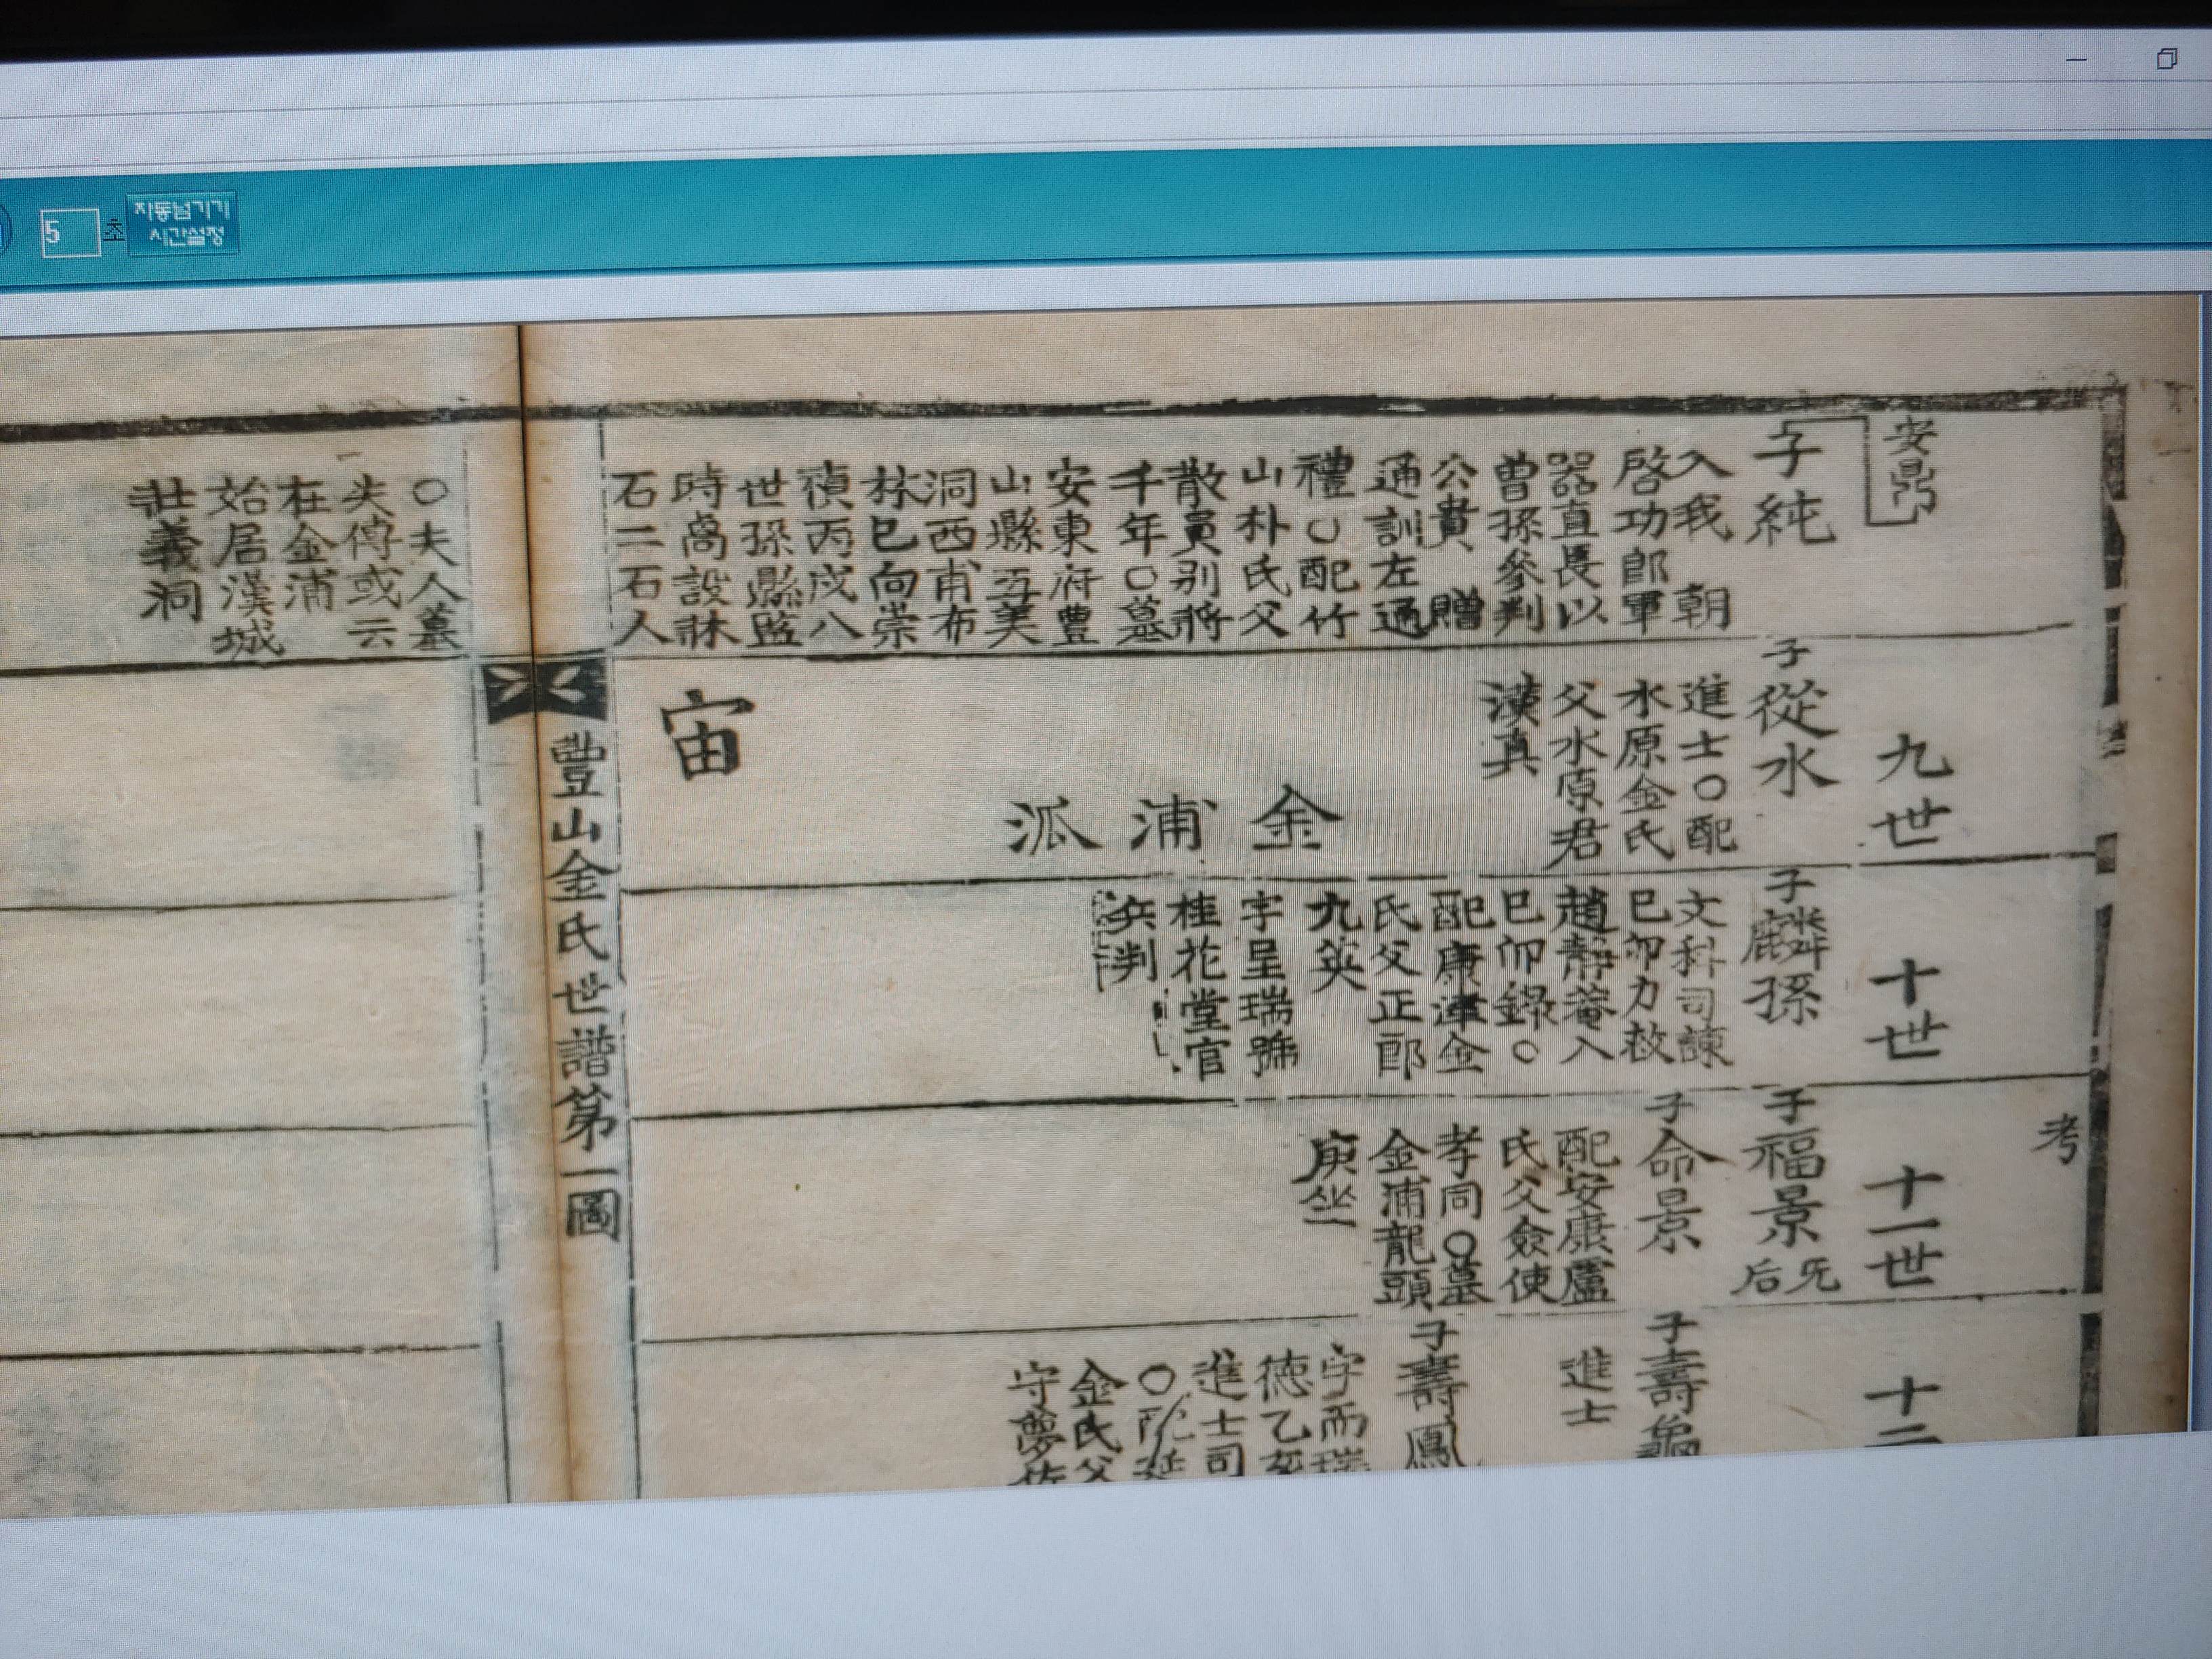 5 초 자동넘기기
시간설정
安鼎
子純
入我 朝
啓功郎軍
器直長以
曽孫參判
公貴 贈
通訓左通
禮○配竹
山朴氏父
散貟别將
千年○墓
安東府豊
山縣五美
洞西甫布
林巳向崇
禎丙戌八
世孫縣監
時卨設牀
石二石人
○夫人墓
失傳或云
在金浦
始居漢城
壯義洞
九世
子從水
進士○配
水原金氏
父水原君
漢真
金浦派
宙
十世
子麟孫
文科司諫
己卯力救
趙靜菴入
己卯錄○
配康津金
氏父正郎
九英
字呈瑞號
桂花堂官
兵判
考
十一世
子福景
旡后
子命景
配安康盧
氏父僉使
孝同○墓
金浦龍頭
庚坐
十二
子壽龜
進士
子壽鳳
字而瑞
德乙亥
進士司
○配延
金氏父
守夢佐
豊山金氏世譜第一圖